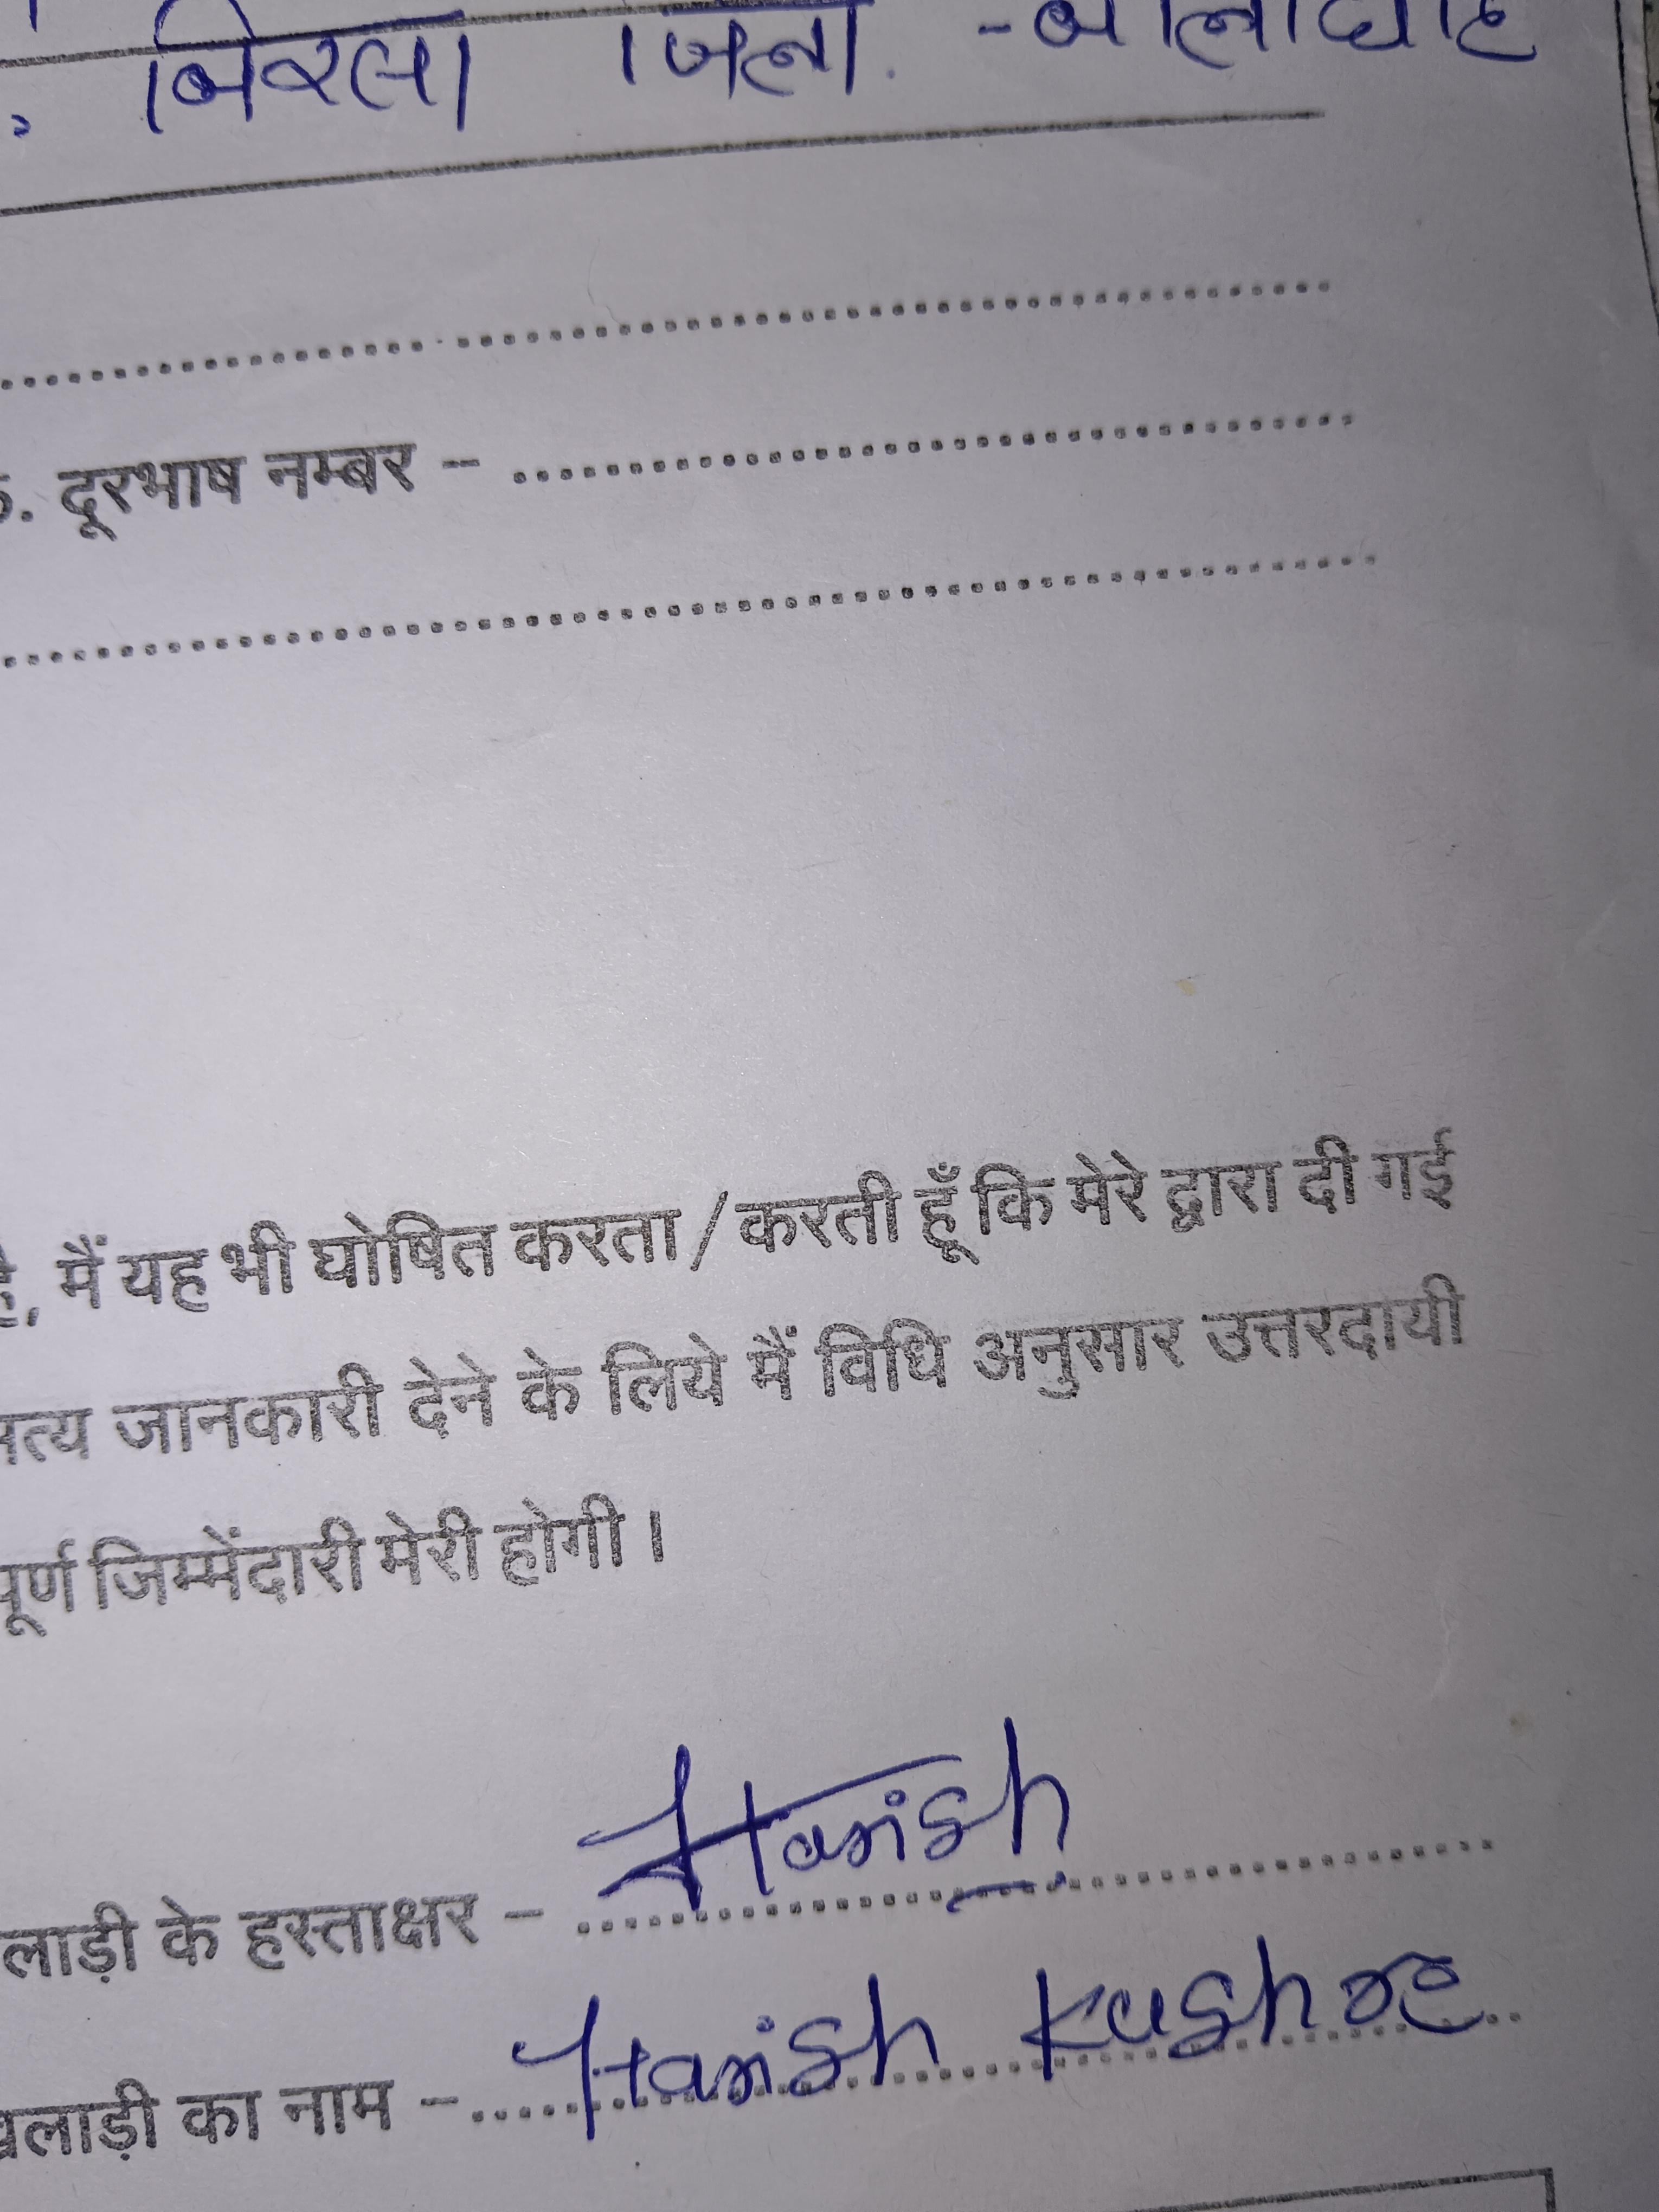 बिरसा जिला. -बालाघाट
. दूरभाष नम्बर – ........................................
है, मैं यह भी घोषित करता / करती हूँ कि मेरे द्वारा दी गई
सत्य जानकारी देने के लिये मैं विधि अनुसार उत्तरदायी
पूर्ण जिम्मेंदारी मेरी होगी ।
लाड़ी के हस्ताक्षर – Harish
खलाड़ी का नाम – Harish Kushre